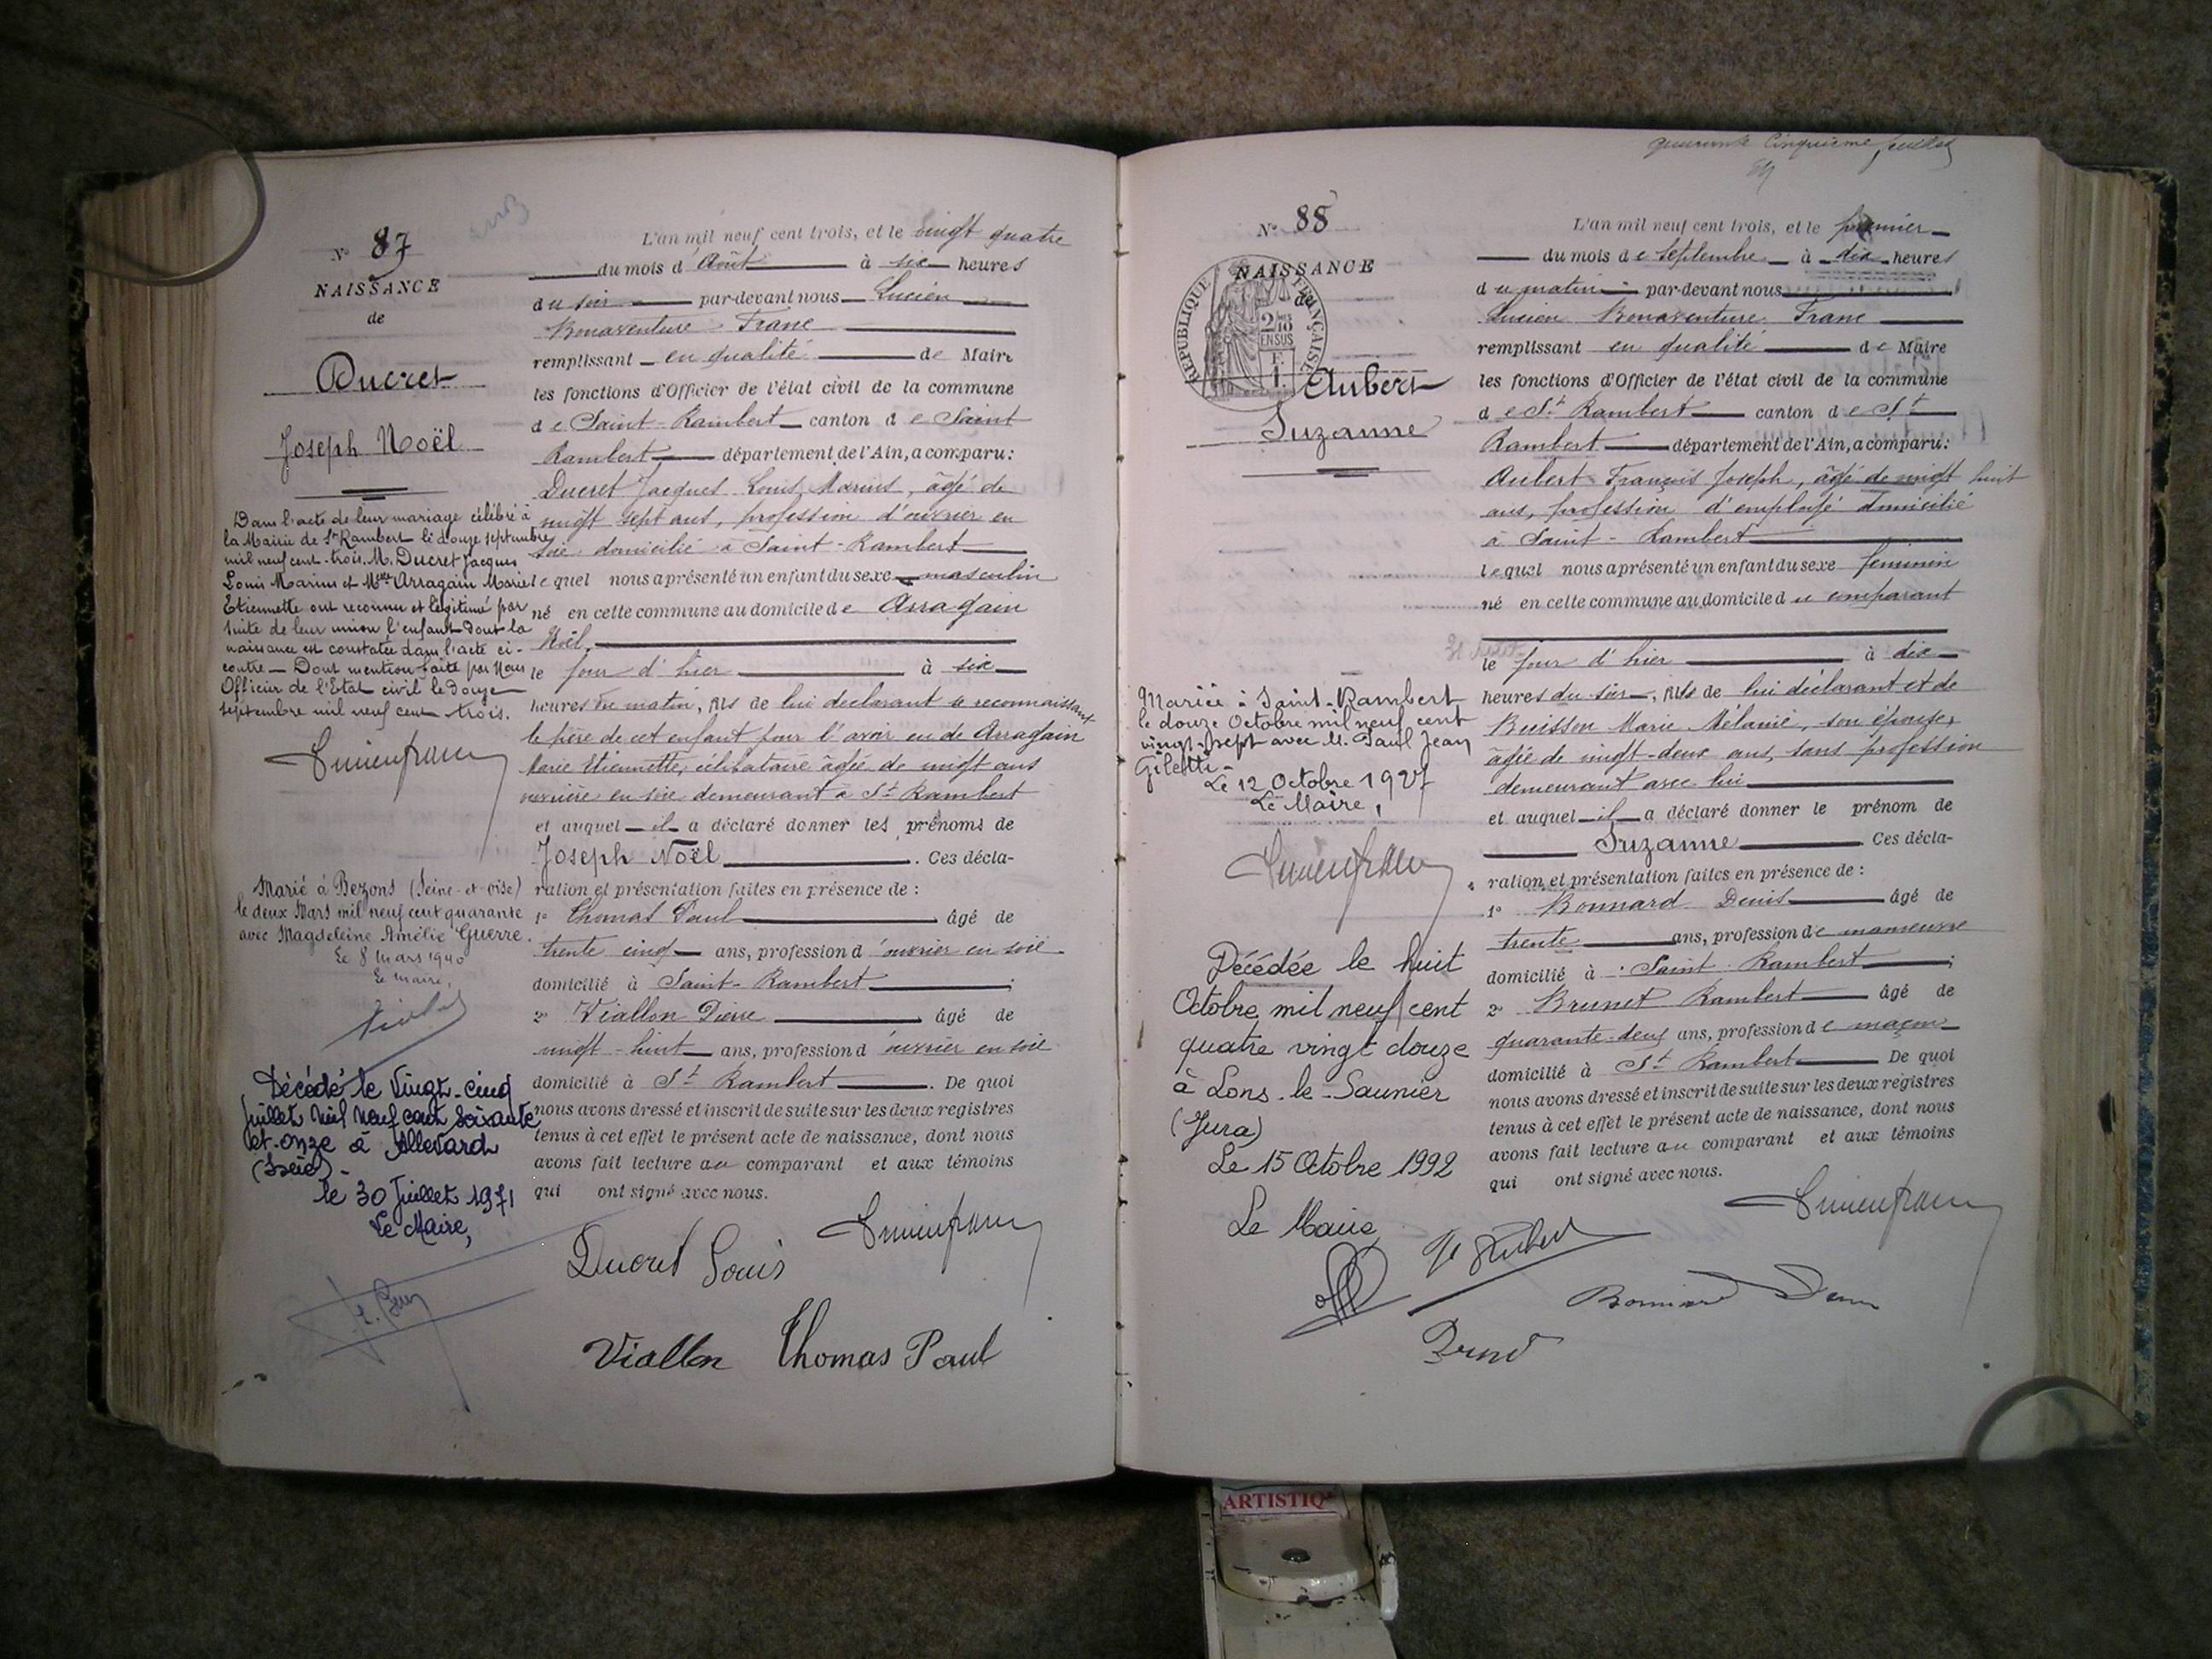 N° 87
NAISSANCE
de
Ducret
Joseph Noël
Dans l'acte de leur mariage célébré à
la Mairie de St Rambert le douze septembre
mil neuf cent trois. M. Ducret Jacques
Louis Marius et Melle Arragain Marie
Etiennette ont reconnu et légitimé par
suite de leur union l'enfant dont la
naissance est constatée dans l'acte ci-
contre — Dont mention faite par Nous
Officier de l'Etat civil le douze
septembre mil neuf cent trois.
Marié à Bezons (Seine-et-oise)
le deux Mars mil neuf cent quarante
avec Magdeleine Amélie Guerre.
Le 8 Mars 1940
Le maire,
Décédé le Vingt-cinq
Juillet Mil Neuf cent soixante
et-onze à Allevard
(Isère)-
le 30 Juillet 1971
Le Maire,
L'an mil neuf cent trois, et le vingt quatre
du mois d'Août à six heures
du soir par-devant nous Lucien
Bonaventure Franc
remplissant en qualité de Maire
les fonctions d'Officier de l'état civil de la commune
de Saint-Rambert canton de Saint
Rambert département de l'Ain, a comparu:
Ducret Jacques Louis Marius, âgé de
vingt sept ans, profession d'ouvrier en
soie domicilié à Saint-Rambert
lequel nous a présenté un enfant du sexe masculin
né en cette commune au domicile de Arragain
Noël
le jour d'hier à six
heures du matin, fils de lui déclarant se reconnaissant
le père de cet enfant pour l'avoir eu de Arragain
Marie Etiennette, célibataire âgée de vingt ans
ouvrière en soie demeurant à St Rambert
et auquel il a déclaré donner les prénoms de
Joseph Noël. Ces décla-
ration et présentation faites en présence de :
1° Thomas Paul âgé de
trente cinq ans, profession d'ouvrier en soie
domicilié à Saint-Rambert;
2° Viallon Pierre âgé de
vingt-huit ans, profession d'ouvrier en soie
domicilié à St Rambert. De quoi
nous avons dressé et inscrit de suite sur les deux registres
tenus à cet effet le présent acte de naissance, dont nous
avons fait lecture au comparant et aux témoins
qui ont signé avec nous.
Ducret Louis Lucien franc
Viallon Thomas Paul
quarante cinquième feuillet
N° 88
NAISSANCE
de
RÉPUBLIQUE FRANÇAISE
2/10 EN SUS
Aubert
Suzanne
Mariée à Saint-Rambert
le douze Octobre mil neuf cent
vingt-sept avec M. Paul Jean
Giletti-
Le 12 Octobre 1927
Le Maire,
Décédée le huit
Octobre mil neuf cent
quatre vingt douze
à Lons-le-Saunier
(Jura)
Le 15 Octobre 1992
Le Maire
L'an mil neuf cent trois, et le premier
du mois de septembre à dix heures
du matin par-devant nous
Lucien Bonaventure Franc
remplissant en qualité de Maire
les fonctions d'Officier de l'état civil de la commune
de St Rambert canton de St
Rambert département de l'Ain, a comparu:
Aubert François Joseph, âgé de vingt huit
ans, profession d'employé domicilié
à Saint-Rambert
lequel nous a présenté un enfant du sexe féminin
né en cette commune au domicile du comparant
le jour d'hier à dix
heures du soir, fils de lui déclarant et de
Buisson Marie Mélanie, son épouse,
âgée de vingt-deux ans, sans profession
demeurant avec lui
et auquel il a déclaré donner le prénom de
Suzanne. Ces décla-
ration et présentation faites en présence de :
1° Bonnard Denis âgé de
trente ans, profession de manoeuvre
domicilié à Saint Rambert;
2° Brunet Rambert âgé de
quarante-deux ans, profession de maçon
domicilié à St Rambert De quoi
nous avons dressé et inscrit de suite sur les deux registres
tenus à cet effet le présent acte de naissance, dont nous
avons fait lecture au comparant et aux témoins
qui ont signé avec nous.
Lucien franc
Bonnard Denis
ARTISTIQ